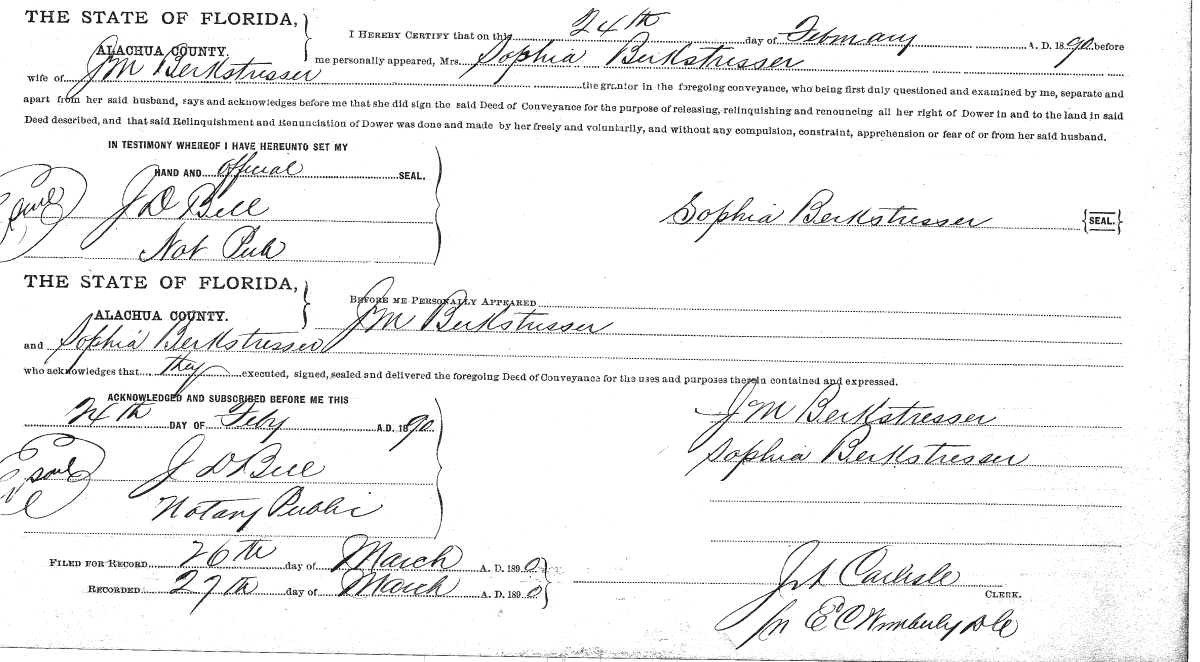 THE STATE OF FLORIDA,
ALACHUA COUNTY.
I HEREBY CERTIFY that on this 24th day of February A. D. 1890, before
me personally appeared, Mrs. Sophia Berkstresser
wife of J M Berkstresser the grantor in the foregoing conveyance, who being first duly questioned and examined by me, separate and
apart from her said husband, says and acknowledges before me that she did sign the said Deed of Conveyance for the purpose of releasing, relinquishing and renouncing all her right of Dower in and to the land in said
Deed described, and that said Relinquishment and Renunciation of Dower was done and made by her freely and voluntarily, and without any compulsion, constraint, apprehension or fear of or from her said husband.
IN TESTIMONY WHEREOF I HAVE HEREUNTO SET MY
HAND AND official SEAL.
J D Bell
Not Pub
Sophia Berkstresser {SEAL.}
THE STATE OF FLORIDA,
ALACHUA COUNTY.
BEFORE ME PERSONALLY APPEARED
J M Berkstresser
and Sophia Berkstresser
who acknowledges that they executed, signed, sealed and delivered the foregoing Deed of Conveyance for the uses and purposes therein contained and expressed.
ACKNOWLEDGED AND SUBSCRIBED BEFORE ME THIS
24th DAY OF Feby A.D. 1890
J D Bell
Notary Public
J M Berkstresser
Sophia Berkstresser
FILED FOR RECORD 26th day of March A. D. 1890
RECORDED 27th day of March A. D. 1890
Carlisle
CLERK.
E C Wimberly D C